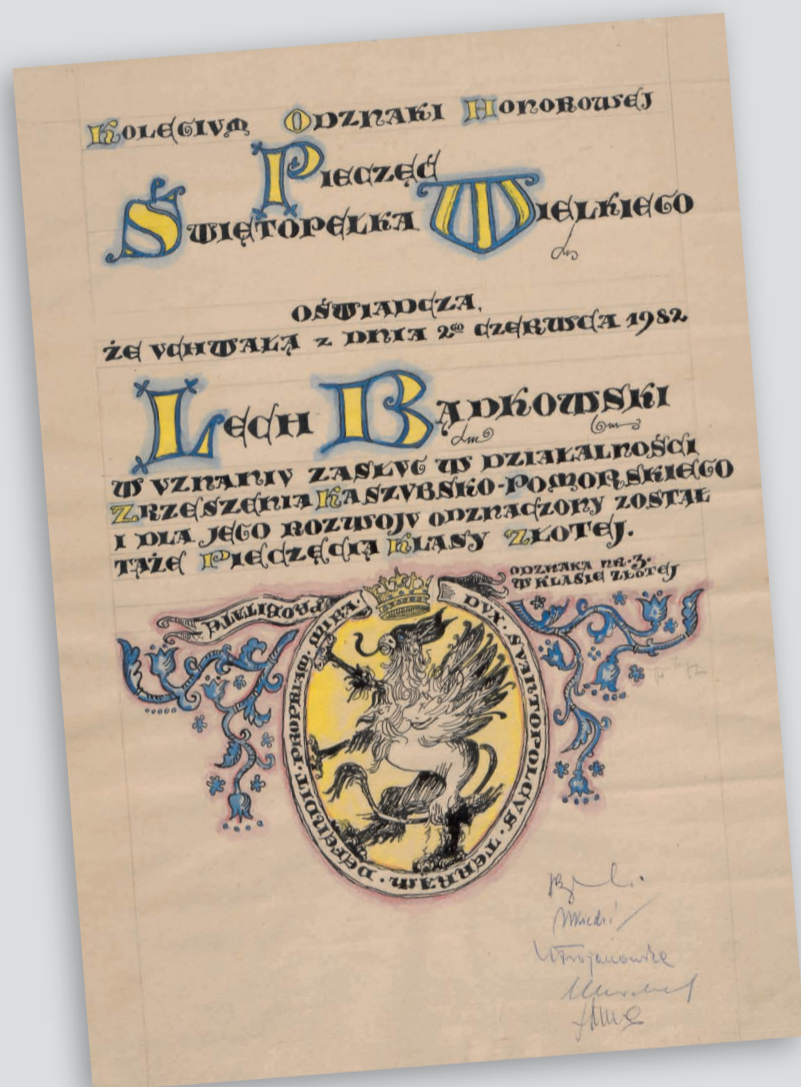 KOLEGIVM ODZNAKI HONOROWEJ
PIECZĘĆ
ŚWIĘTOPEŁKA WIELKIEGO
OŚWIADCZA,
ŻE VCHWAŁĄ Z DNIA 2GO CZERWCA 1982
LECH BĄDKOWSKI
W VZNANIV ZASŁVG W DZIAŁALNOŚCI
ZRZESZENIA KASZVBSKO-POMORSKIEGO
I DLA JEGO ROZWOJV ODZNACZONY ZOSTAŁ
TĄŻE PIECZĘCIĄ KLASY ZŁOTEJ.
ODZNAKA NR. 3.
W KLASIE ZŁOTEJ
DVX · SVANTOPOLCVS · TERRAM · DEFENDIT · PROPRIAM · MIRA · PROBITATE